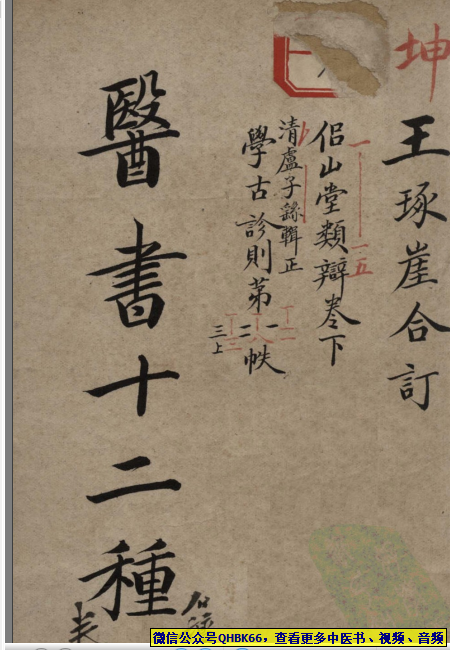 坤
王琢崖合訂
侶山堂類辯卷下
清盧子繇輯正
學古診則第一二三上帙
醫書十二種
微信公众号QHBK66，查看更多中医书、视频、音频